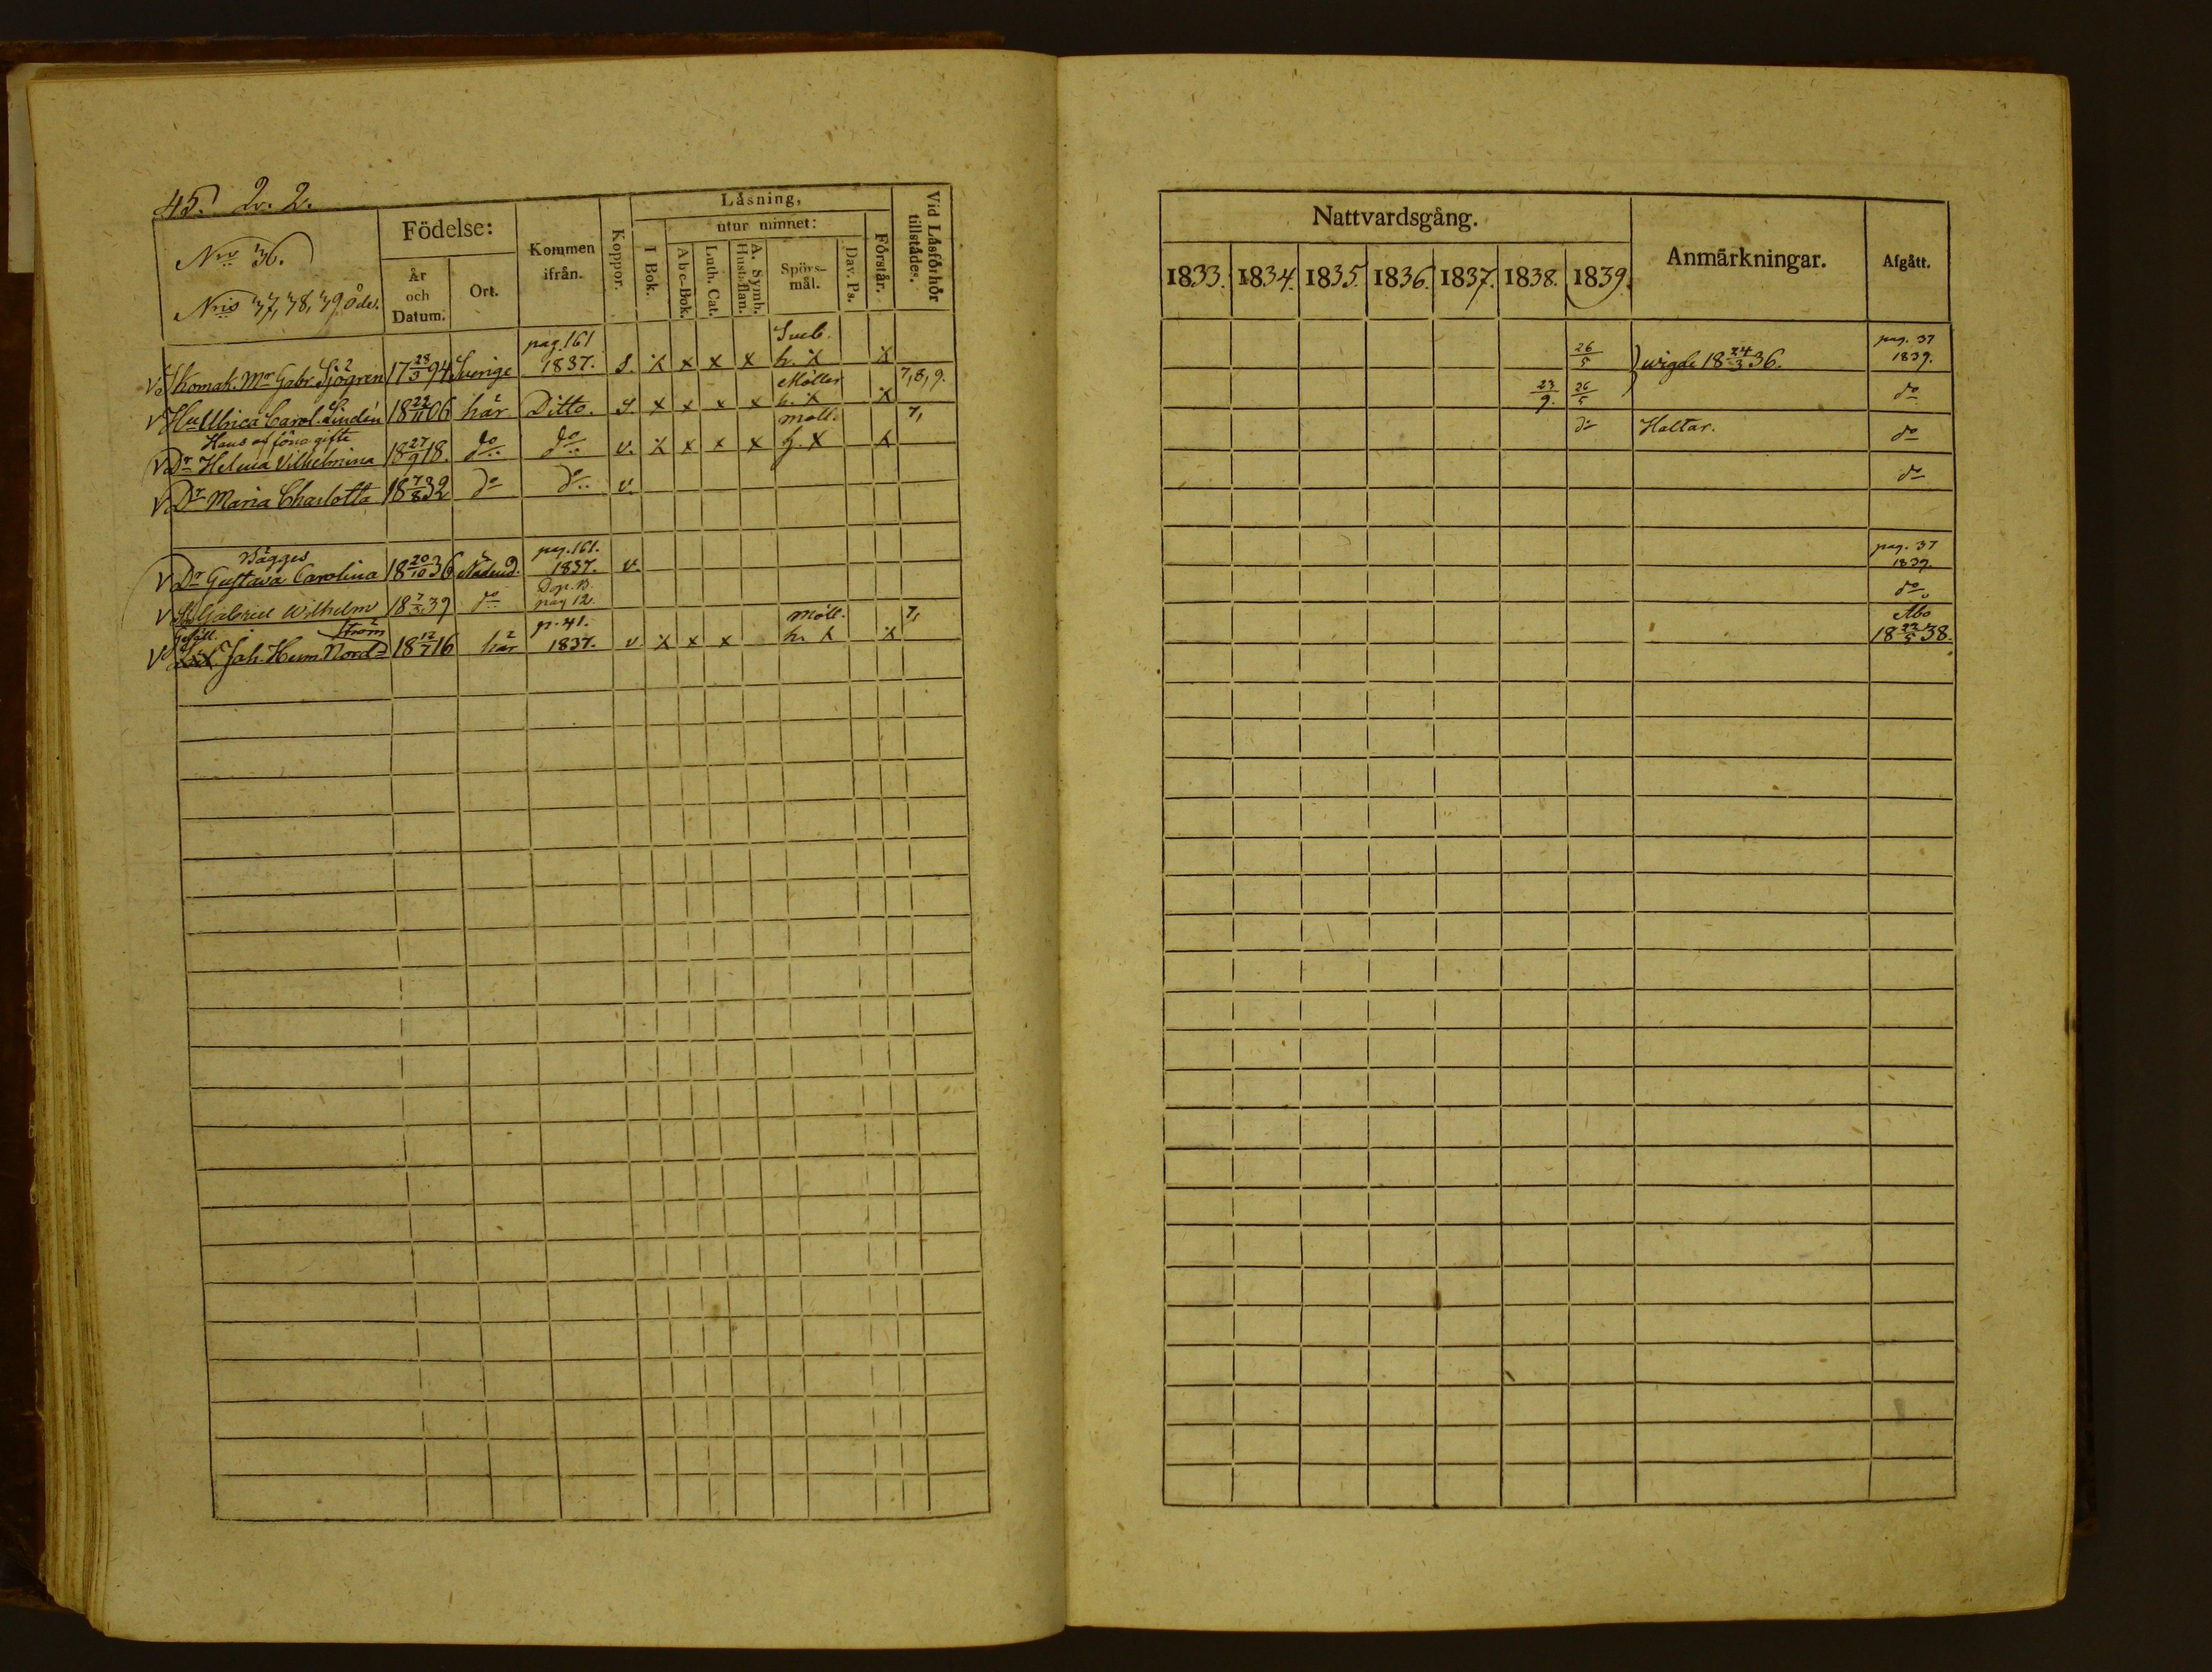 45. Qv. 2.
Nro 36.
Nris 37, 38, 39 öde.
Födelse:
År och Datum.
Ort.
Kommen ifrån.
Koppor.
Läsning,
I Bok.
utur minnet:
Abc-Bok.
Luth. Cat.
A. Symb. Hust⸗flan.
Spörs⸗mål.
Dav. Ps.
Förstår.
Vid Läsförhör tillstädes.
Nattvardsgång.
1833. 1834. 1835. 1836. 1837. 1838. 1839.
Anmärkningar.
Afgått.
Skomak. Mr Gabr. Sjögren 17 28/3 94 Sverige pag. 161 1837. s. x x x x Sveb. h. x x 26/5 wigde 18 24/3 36. pag. 37 1839.
v Hu Ulrica Carol. Lindén 18 22/11 06 här Ditto. s. x x x x Möller h. x x 7, 8, 9. 23/9. 26/5 do
Hans af förra gifte
v Dr Helena Vilhelmina 18 27/9 18. do do v. x x x x Moll. h. x x 7, do Haltar. do
v Dr Maria Charlotta 18 7/8 32 do do v. do
Bägges
v Dr Gustava Carolina 18 20/10 36 Nådend. pag. 161. 1837. v. pag. 37 1839.
v S. Gabriel Wilhelm 18 7/3 39 do Dop. B. pag 12. do
Gesäll. Joh. Herm Nordström 18 12/7 16 här p. 41. 1837. v. x x x Möll. h. x x 7, Åbo 18 22/5 38.